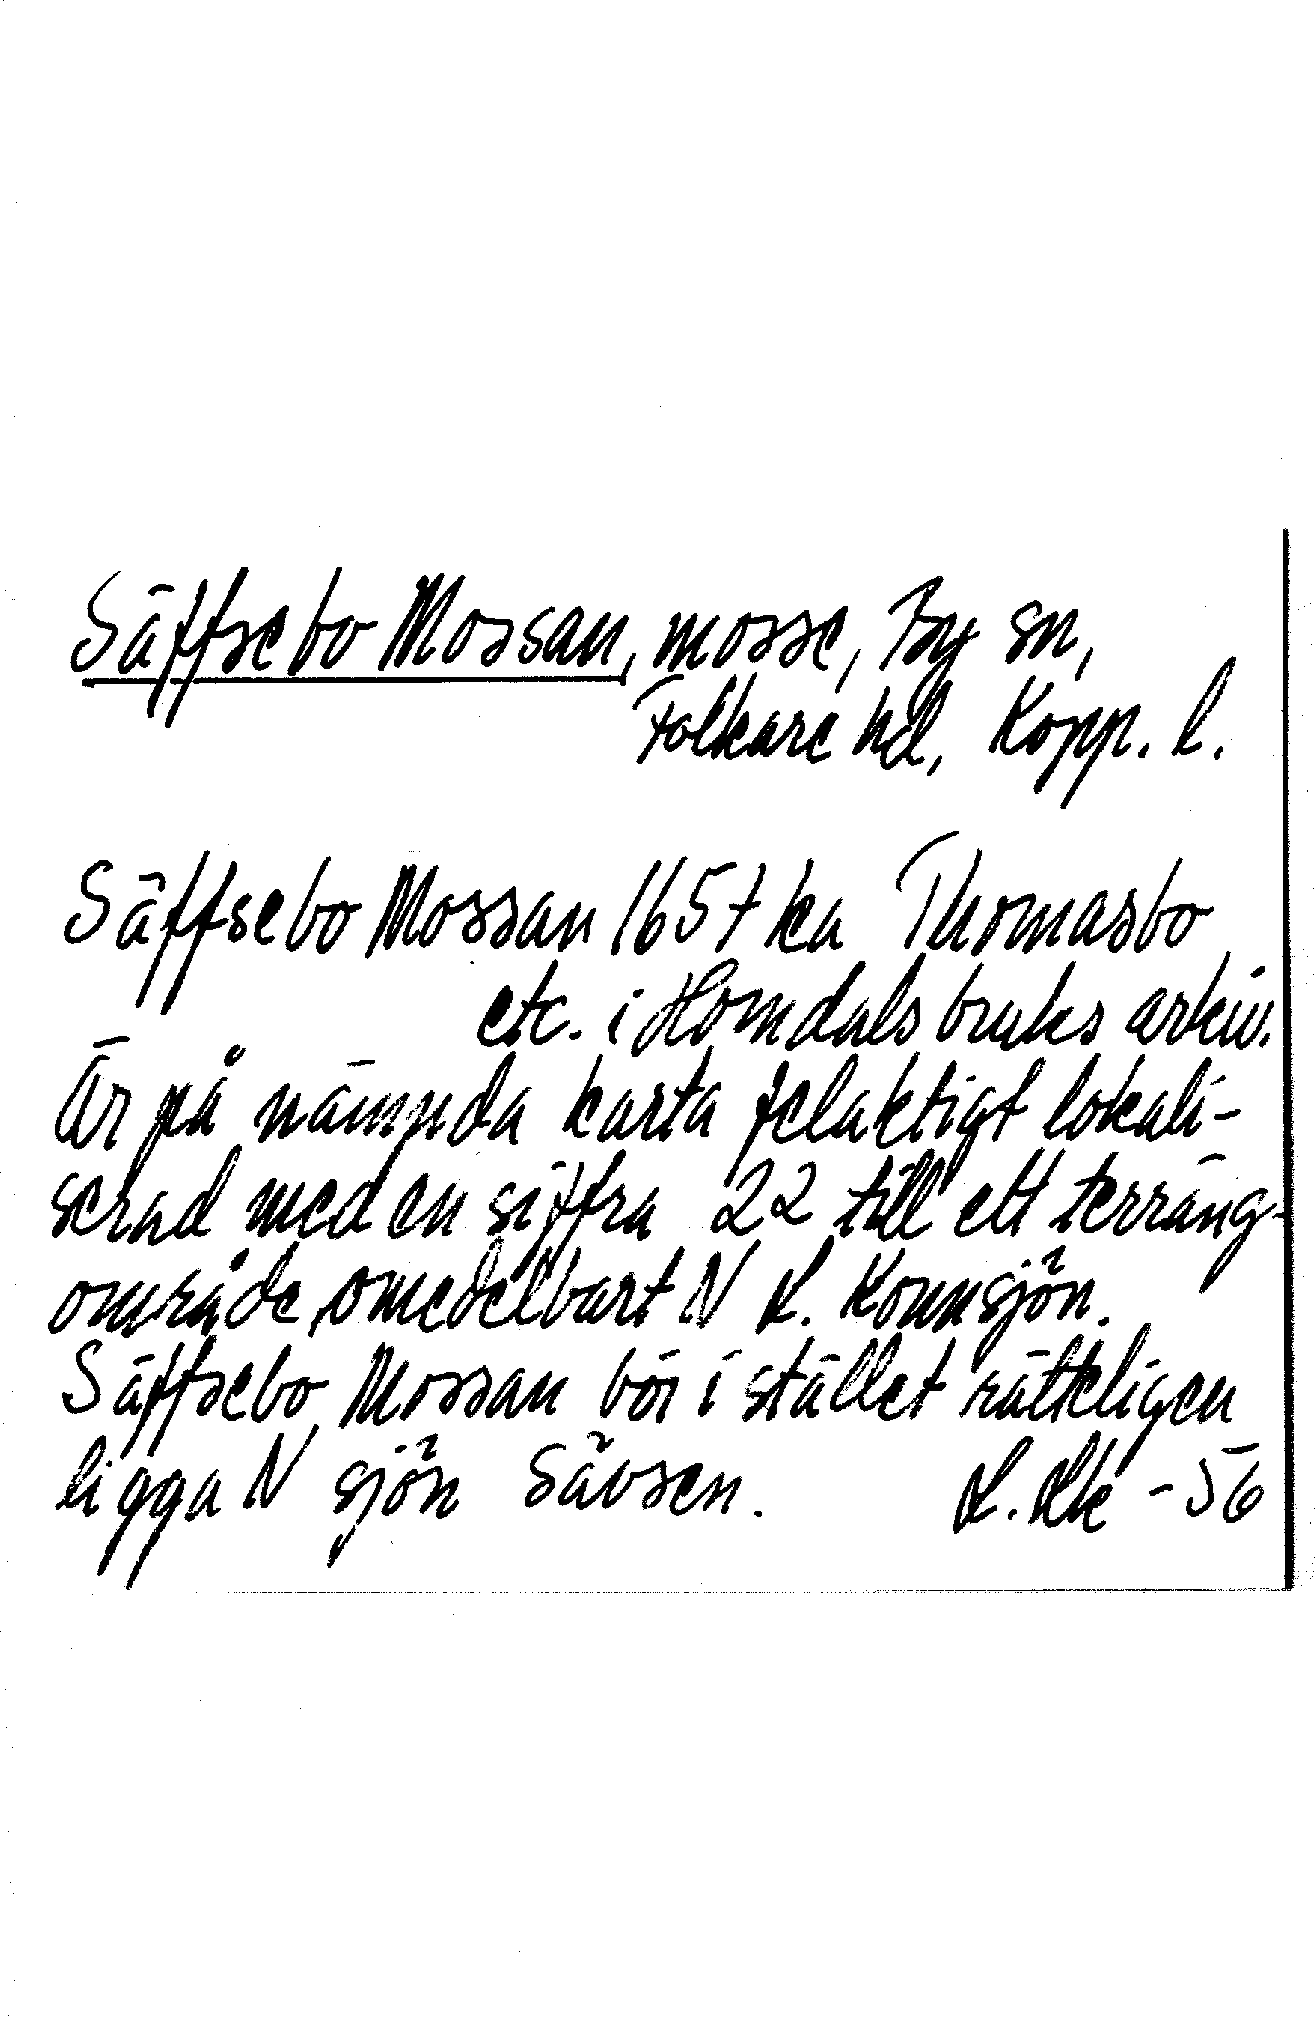 Säffsebo Mossan, mosse, By sn,
Folkare hd, Kopp. l.
Säffsebo Mossan 1657 ka Thomasbo
etc. i Horndals bruks arkiv.
Är på nämnda karta felaktigt lokali-
serad med en siffra 22 till ett terräng-
område omedelbart N L. Kounsjön.
Säffsebo Mossan bör i stället rätteligen
ligga N sjön Sävsen. L. Lk - 56